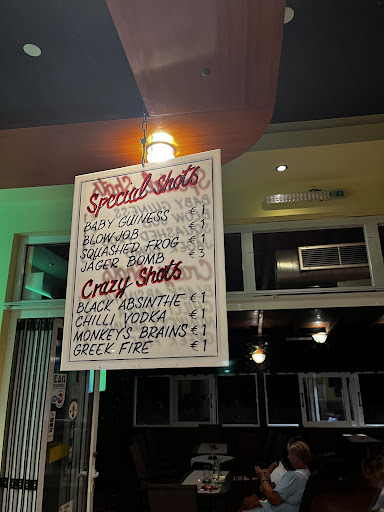 Special Shots
BABY GUINESS €1
BLOW JOB €1
SQUASHED FROG €1
JAGER BOMB €3
Crazy Shots
BLACK ABSINTHE €1
CHILLI VODKA €1
MONKEY'S BRAINS €1
GREEK FIRE €1